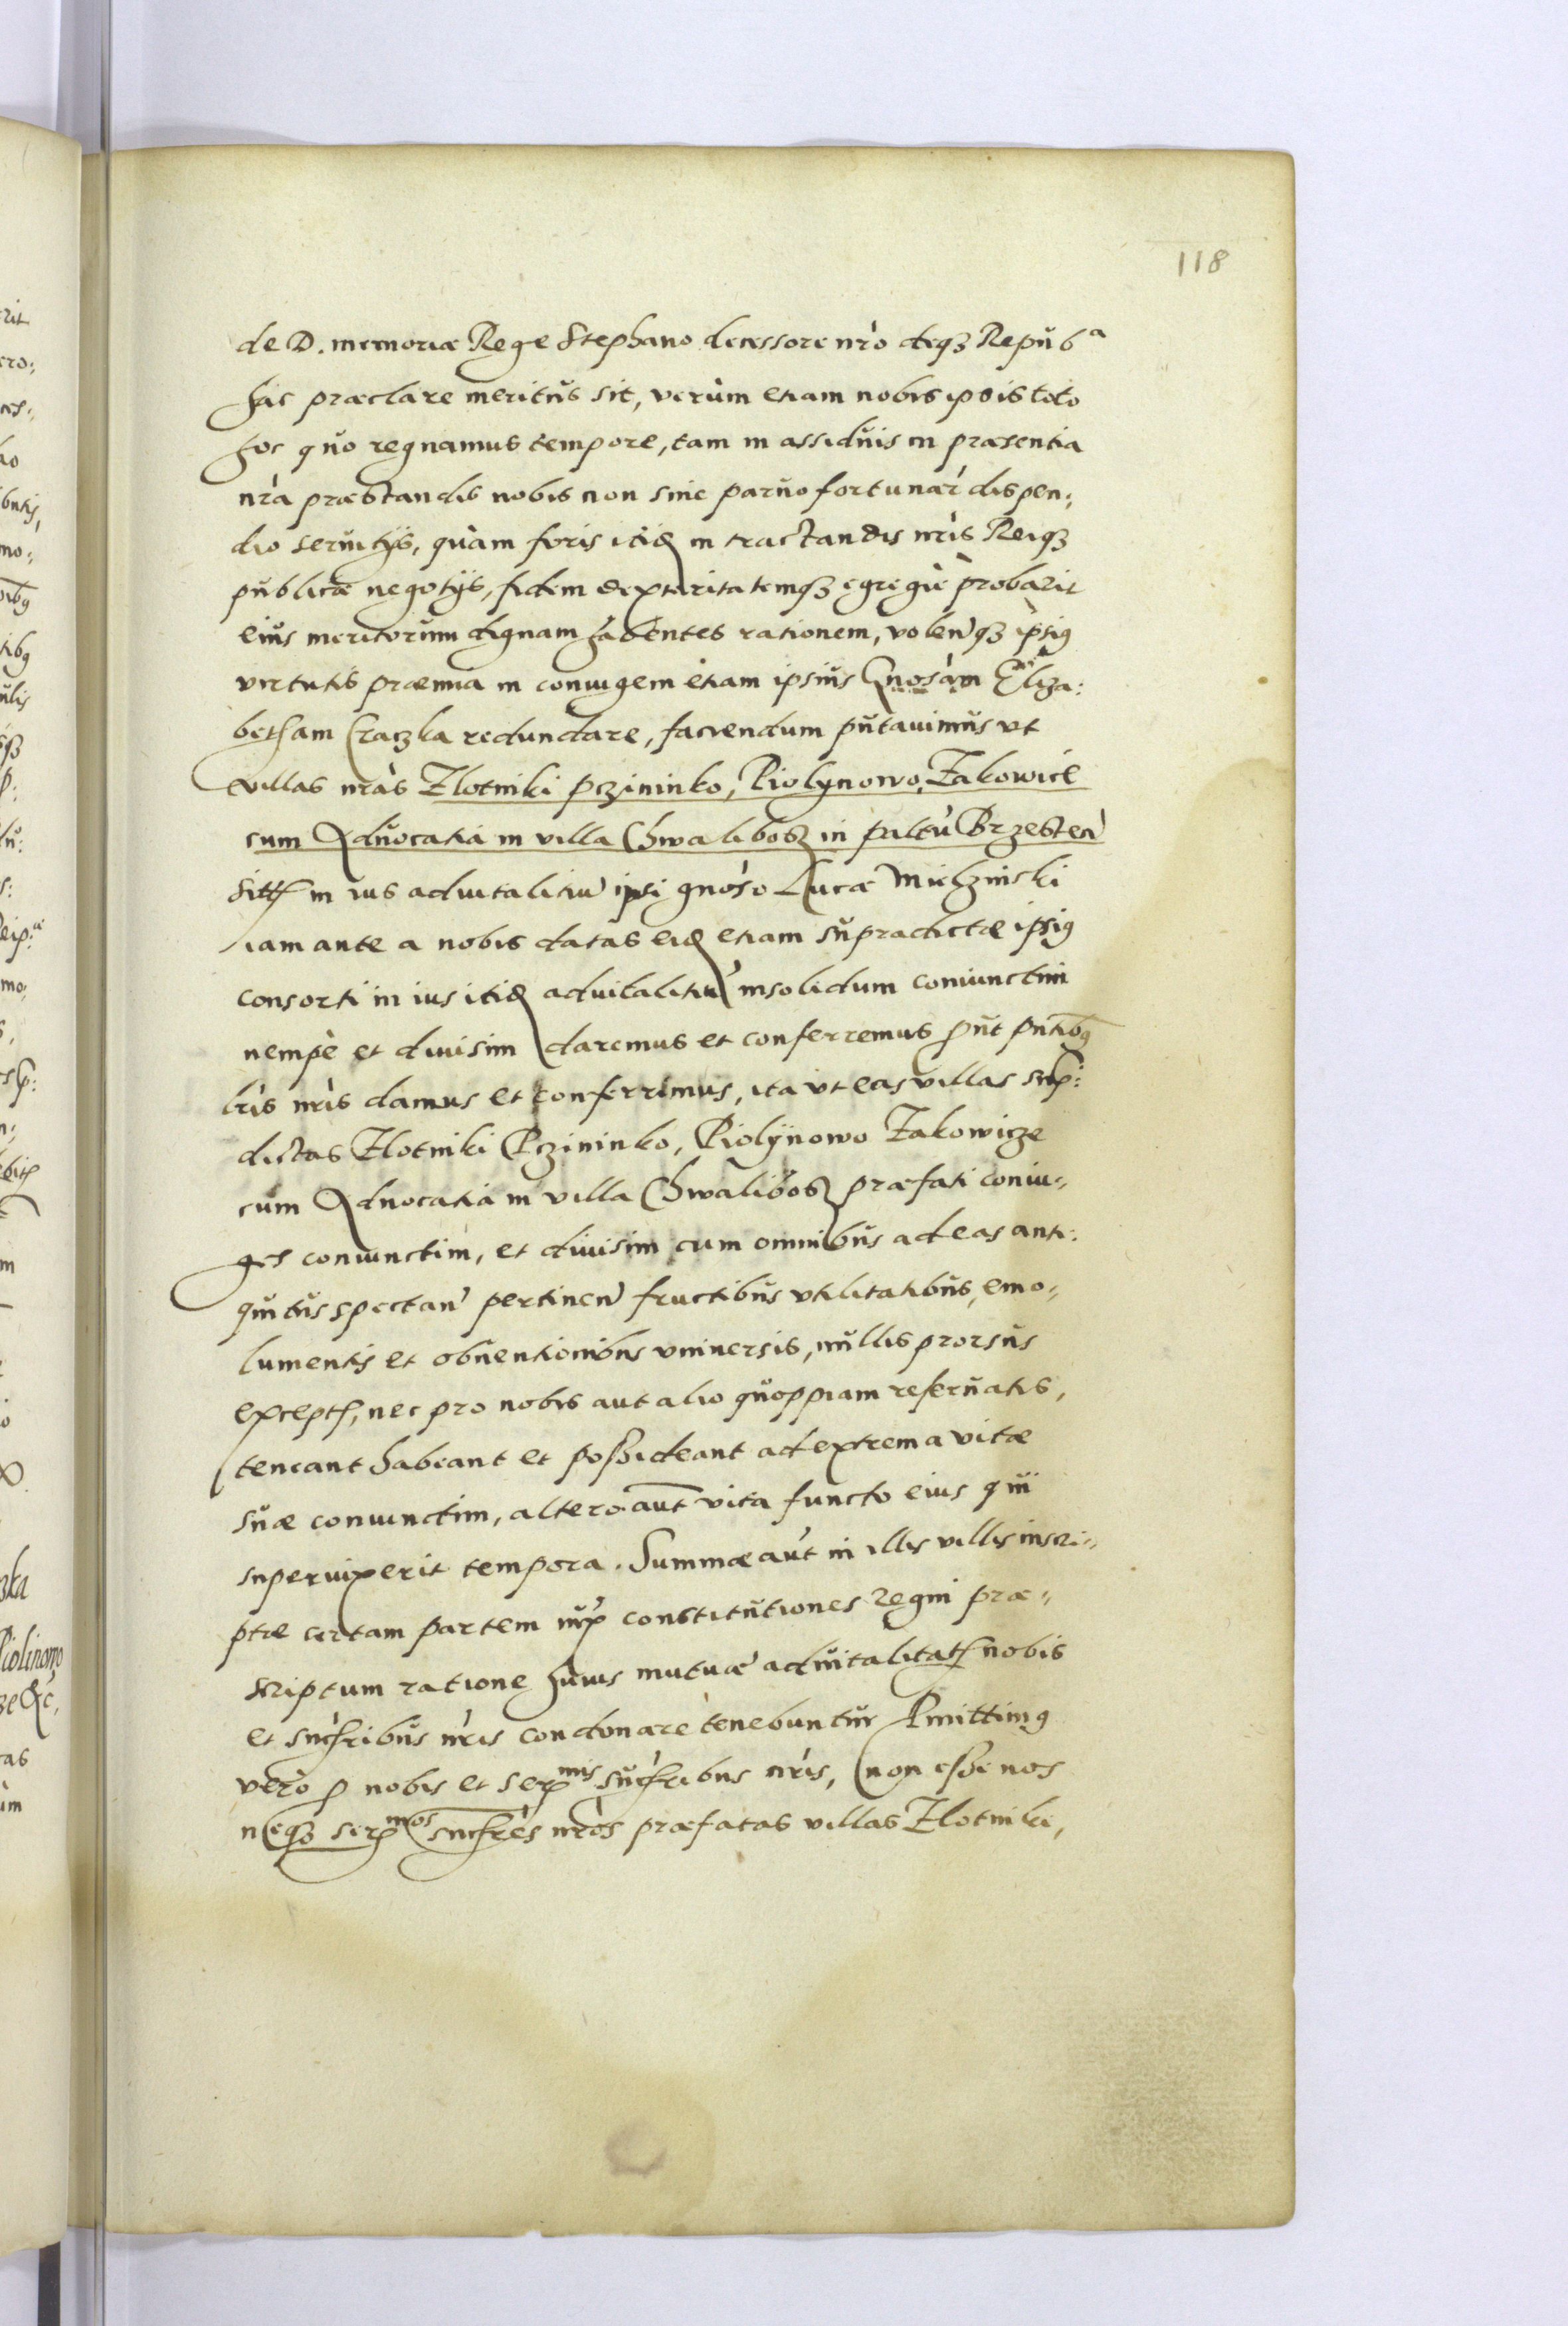 118
de D. memoriæ Rege Stephano decessore nro deqꝫ Repubᵃ
hac præclare meritus sit, verùm etiam nobis ipsis toto
hoc quo regnamus tempore, tam in assiduis in præsentia
nra præstandis nobis non sine paruo fortunar dispen:
dio seruitijs, quàm foris itid in tractandis nris Reiqꝫ
publicæ negotijs, fidem dexteritatemqꝫ egregiè probarit
eius meritorum dignam habentes rationem, volenqꝫ ipsiꝰ
virtutis præmia in coniugem etiam ipsius Gnosam Eliza:
betham Craczka redundare, faciendum putauimus vt
villas nras Zlotniki pczininko, Piolynowo, Zakowice
cum Aduocatia in villa Chwalibosz in paltu Brzesten
sitt in ius aduitalitiu ipsi gnoso Lucæ Mielzinski
iam ante a nobis datas eid etiam supradictæ ipsiꝰ
consorti in ius itid aduitalitiu insolidum coniunctim
nempè et diuisim daremus et conferremus ꝓut pntibꝰ
lris nris damus et conferrimus, ita vt eas villas sup:
dictas Zlotniki Pczininko, Piolÿnowo Zakowicze
cum Aduocatia in villa Chwalibosz præfati coniu:
ges coniunctim, et diuisim cum omnibus ad eas anti:
quitus spectan pertinen fructibus vtilitatibus, emo:
lumentis et obuentionibus vniuersis, nullis prorsus
except, nec pro nobis aut alio quoppiam reseruatis,
teneant habeant et possideant ad extrema vitæ
suæ coniunctim, altero aut vita functo eius qui
superuixerit tempora. Summæ aut in illis villis inscri:
ptæ certam partem iux constitutiones regni præ:
scriptum ratione huius mutuæ aduitalitat nobis
et sucribus nris condonare tenebuntur Pmittimꝰ
vero ꝓ nobis et serᵐⁱˢ sucribus nris, non esse nos
neqꝫ serᵐᵒˢ sucres nros præfatas villas Zlotniki,